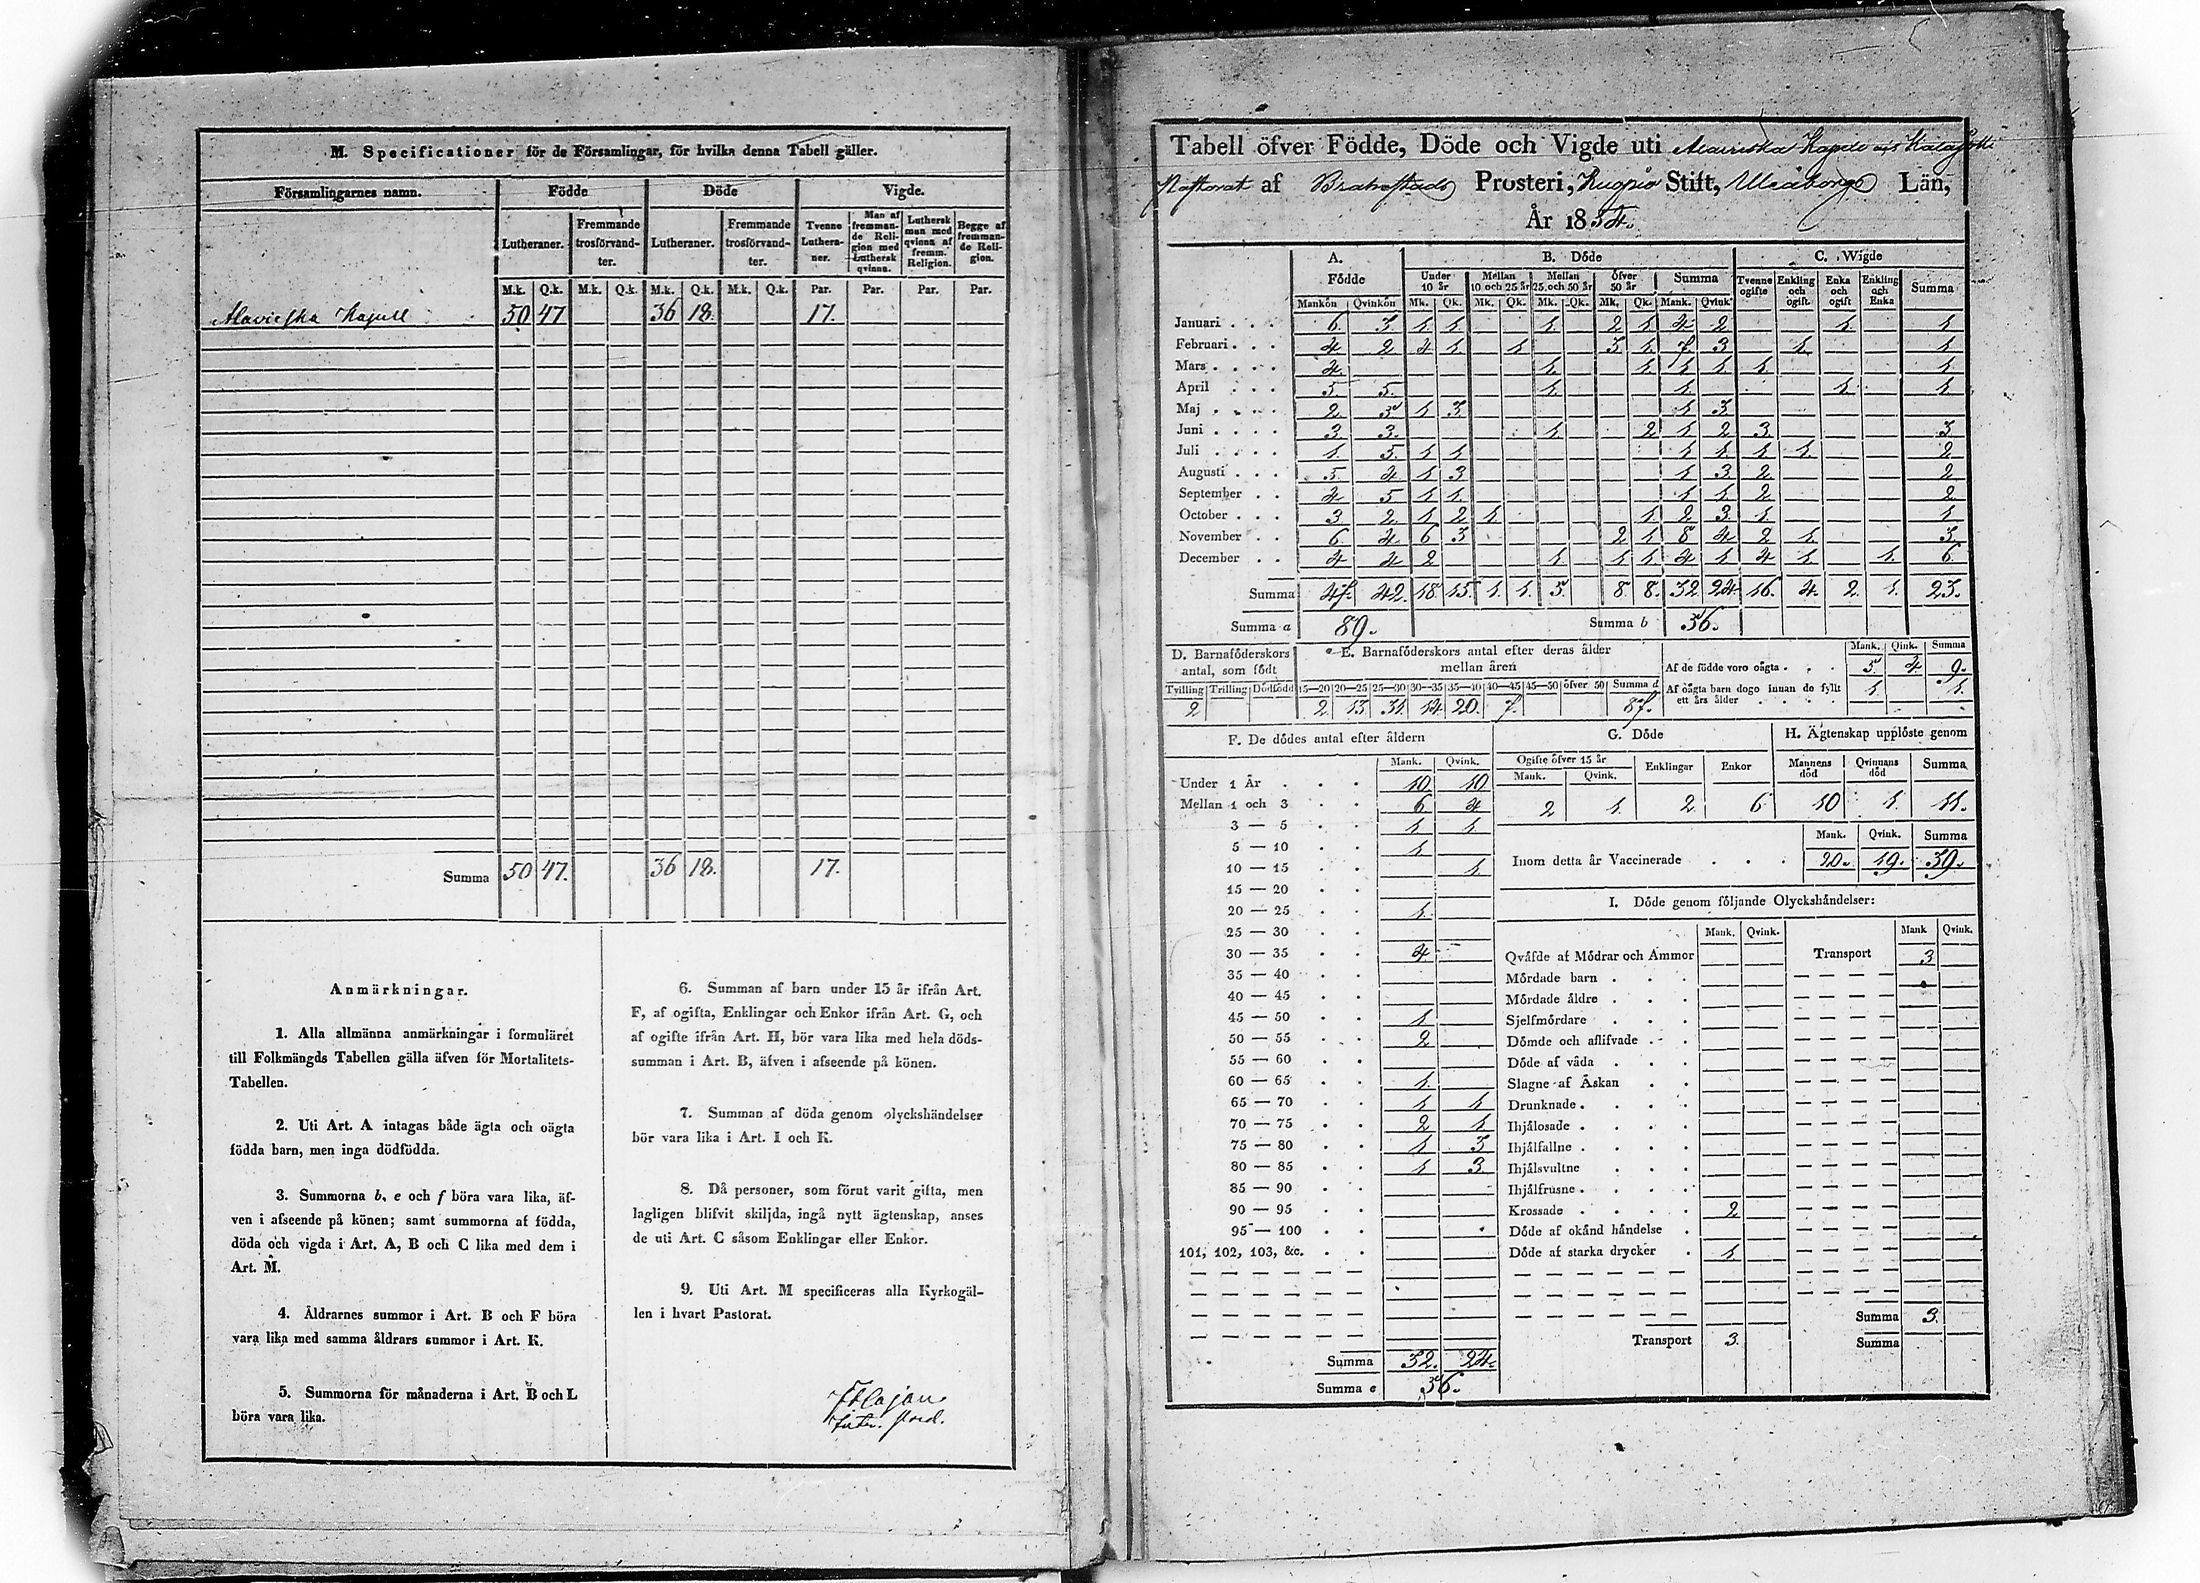 M. Specificationer för de Församlingar, för hvilka denna Tabell gäller.
Församlingarnes namn. Födde Döde Vigde.
Lutheraner. Fremmande trosförvandter. Lutheraner. Fremmande trosförvandter. Tvenne Lutheraner. Man af fremmande Religion med Luthersk qvinna. Luthersk man med qvinna af fremm. Religion. Begge af fremmande Religion.
M.k. Q.k. M.k. Q.k. M.k. Q.k. M.k. Q.k. Par. Par. Par. Par.
Alavieska Kapell 50 47 36 18. 17.
Summa 50 47. 36 18. 17.
Anmärkningar.
1. Alla allmänna anmärkningar i formuläret
till Folkmängds Tabellen gälla äfven för Mortalitets-
Tabellen.
2. Uti Art. A intagas både ägta och oägta
födda barn, men inga dödfödda.
3. Summorna b, e och f böra vara lika, äf-
ven i afseende på könen; samt summorna af födda,
döda och vigda i Art. A, B och C lika med dem i
Art. M.
4. Åldrarnes summor i Art. B och F böra
vara lika med samma åldrars summor i Art. K.
5. Summorna för månaderna i Art. B och L
böra vara lika.
6. Summan af barn under 15 år ifrån Art.
F, af ogifta, Enklingar och Enkor ifrån Art. G, och
af ogifte ifrån Art. H, bör vara lika med hela döds-
summan i Art. B, äfven i afseende på könen.
7. Summan af döda genom olyckshändelser
bör vara lika i Art. I och K.
8. Då personer, som förut varit gifta, men
lagligen blifvit skiljda, ingå nytt ägtenskap, anses
de uti Art. C såsom Enklingar eller Enkor.
9. Uti Art. M specificeras alla Kyrkogäl-
len i hvart Pastorat.
Tabell öfver Födde, Döde och Vigde uti Alavieska Kapell
Pastorat af Brahestads Prosteri, Kuopio Stift, Uleåborgs Län,
År 1854.
A. Födde B. Döde C. Wigde
Under 10 år Mellan 10 och 25 år Mellan 25 och 50 år öfver 50 år Summa Tvenne ogifte Enkling och ogift. Enka och ogift Enkling och Enka Summa
Mankön Qvinkön Mk. Qk. Mk. Qk. Mk. Qk. Mk. Qk. Mank. Qvink.
Januari 6. 3 1 1 1. 2 1 4 2 1. 1
Februari 4 2 4 1. 1 3 1. 7. 3 1. 1
Mars 4. 1 1 1 1 1 1
April 5. 5. 1 1. 1 1
Maj 2. 3 1 3. 1 3.
Juni 3 3. 1 2 1 2 3 3
Juli 1. 5. 1 1 1 1. 1 1. 2
Augusti 5. 4 1 3 1 3 2 2
September 4 5 1 1. 1 1 2 2
October 3 2 1 2 1 1 2 3 1 1
November 6 4 6 3 2 1 8 4 2 1 3
December 4 4 2 1 1 1 4 1 4 1 1 6
Summa 47. 42. 18 15. 1. 1. 5. 8 8. 32 24 16. 4 2 1. 23.
Summa a 89. Summa b 56.
D. Barnaföderskors antal, som födt
E. Barnaföderskors antal efter deras ålder mellan åren
Tvilling Trilling Dödfödd 15—20 20—25 25—30 30—35 35—40 40—45 45—50 öfver 50 Summa d
2 2. 13 31. 14 20. 7. 87.
Mank. Qink. Summa
Af de födde voro oägta 5 4 9.
Af oägta barn dogo innan de fyllt ett års ålder 1 1.
F. De dödes antal efter åldern
Mank. Qvink.
Under 1 År 10 10
Mellan 1 och 3 6 4
3 — 5 1 1
5 — 10 1
10 — 15 1
15 — 20
20 — 25 1.
25 — 30
30 — 35 4
35 — 40
40 — 45
45 — 50 1
50 — 55 2
55 — 60
60 — 65 1.
65 — 70 1 1
70 — 75 2 1
75 — 80 1 3
80 — 85 1 3
85 — 90
90 — 95
95 — 100
101, 102, 103, &c.
Summa 32. 24.
Summa e 56.
G. Döde
Ogifte öfver 15 år Enklingar Enkor
Mank. Qvink.
2 1 2 6
H. Ägtenskap upplöste genom
Mannens död Qvinnans död Summa
10 1. 11.
Mank. Qvink. Summa
Inom detta år Vaccinerade 20. 19. 39.
I. Döde genom följande Olyckshändelser:
Mank. Qvink. Mank Qvink.
Qväfde af Mödrar och Ammor Transport 3
Mördade barn
Mördade äldre
Sjelfmördare
Dömde och aflifvade
Döde af våda
Slagne af Åskan
Drunknade
Ihjälosade
Ihjälfallne
Ihjälsvultne
Ihjälfrusne
Krossade 2
Döde af okänd händelse
Döde af starka drycker 1
Summa 3.
Transport 3. Summa